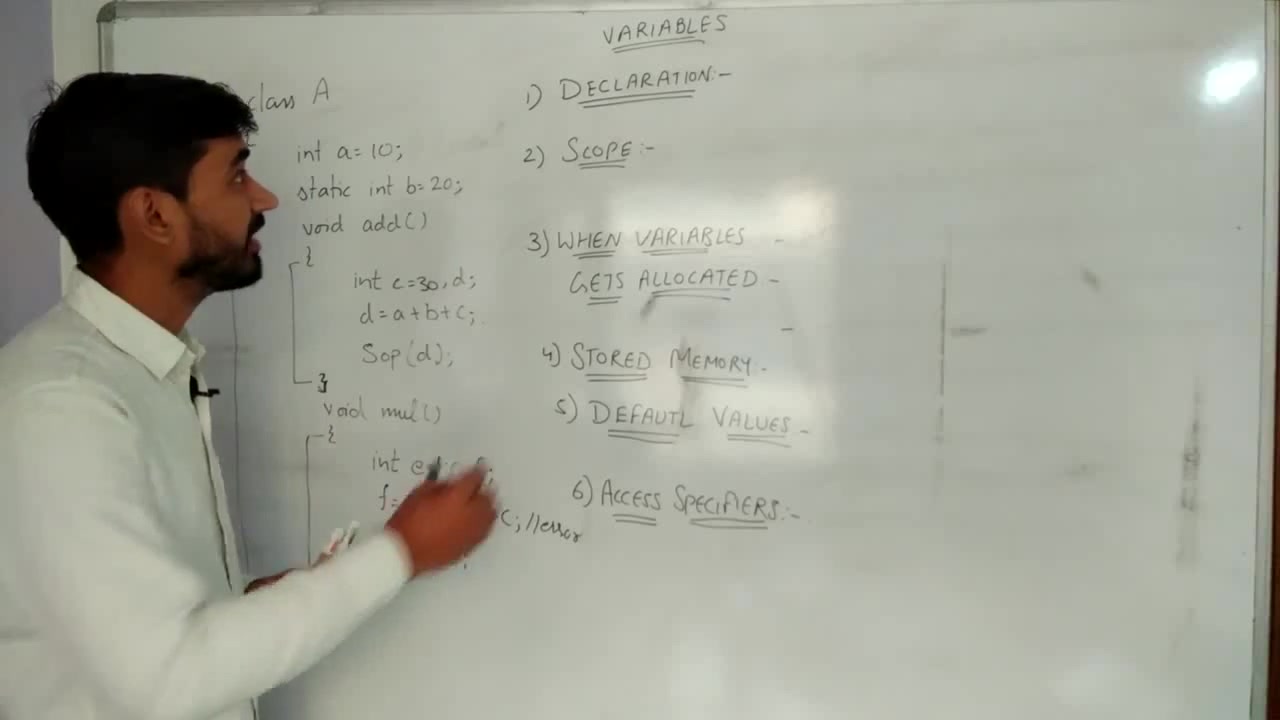 VARIABLES
class A
int a=10;
static int b=20;
void add()
{
int c=30,d;
d=a+b+c;
Sop(d);
}
void mul()
{
int
f=
C; //error
1) DECLARATION:-
2) SCOPE:-
3) WHEN VARIABLES -
GETS ALLOCATED -
-
4) STORED MEMORY.-
5) DEFAUTL VALUES -
6) ACCESS SPECIFIERS:-